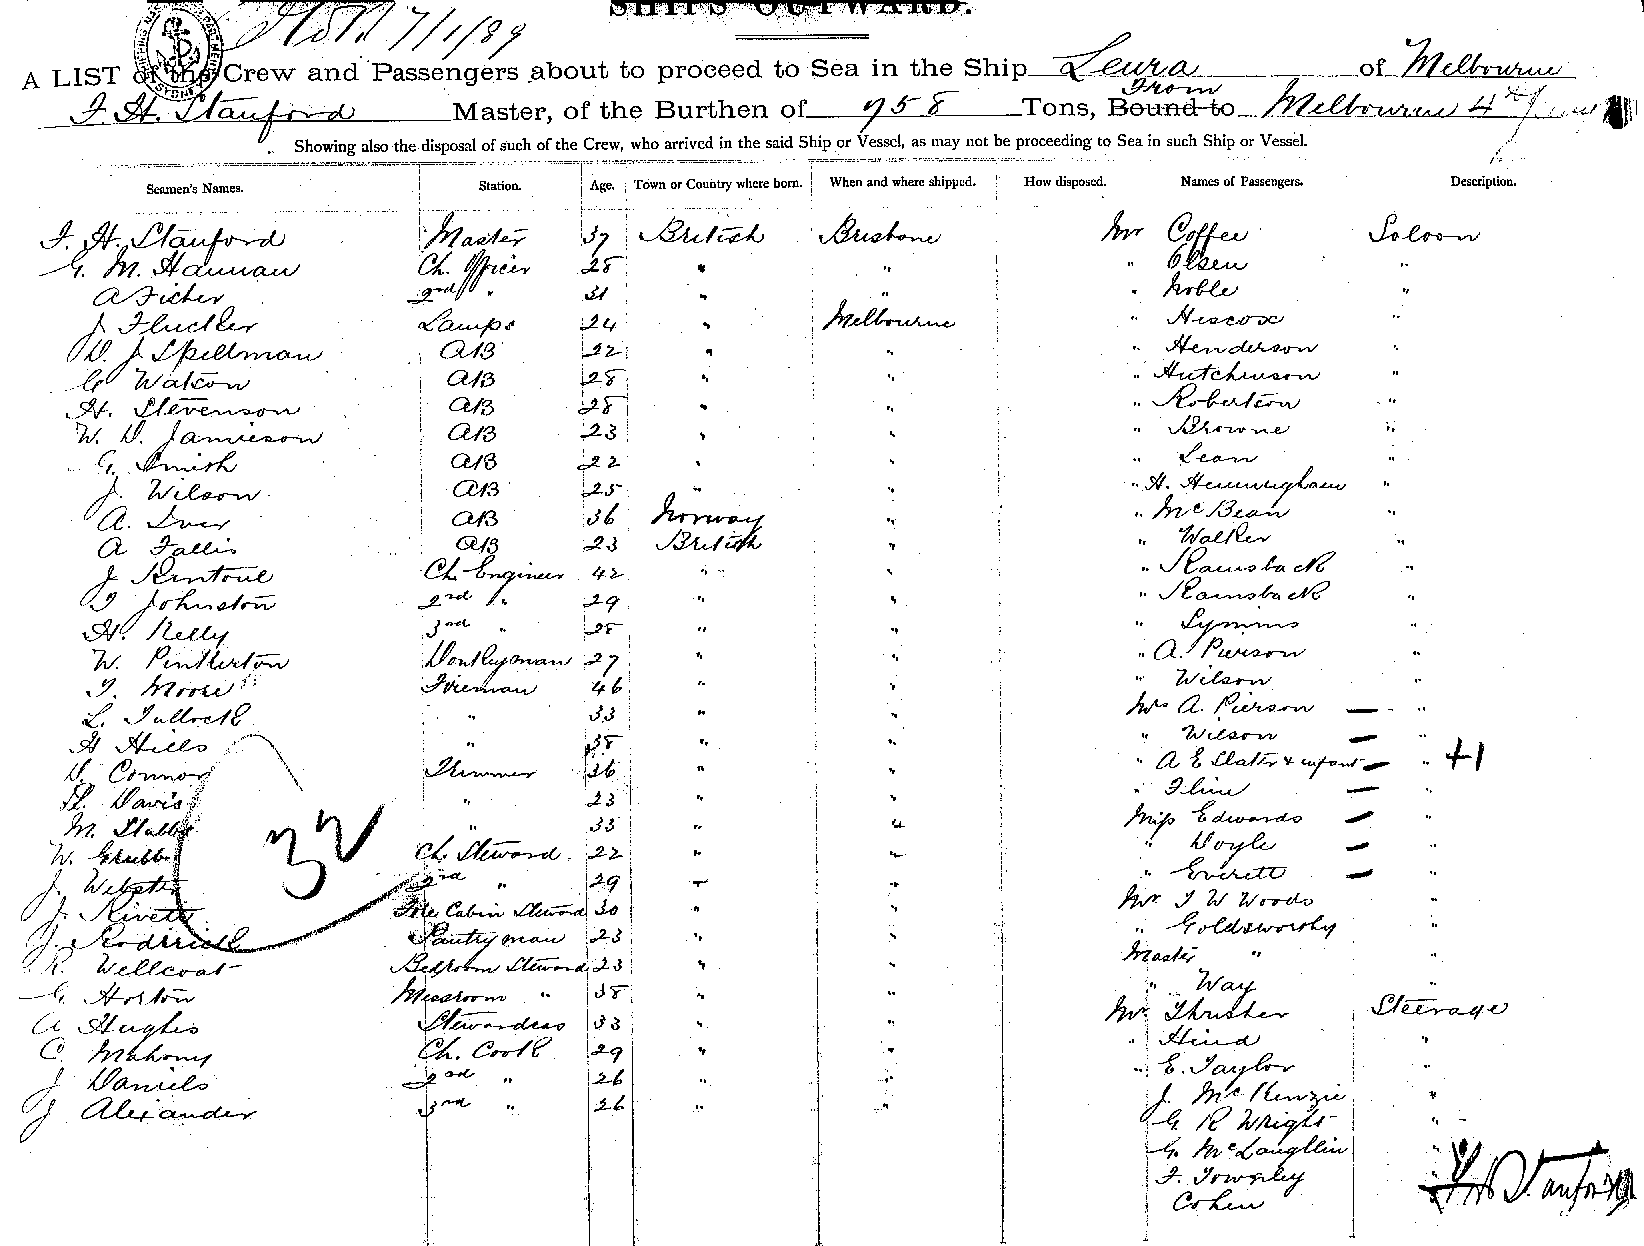 SHIPS OUTWARD.
7/1/89
A LIST of the Crew and Passengers about to proceed to Sea in the Ship Leura of Melbourne
F. H. Stanford Master, of the Burthen of 958 Tons, Bound to From Melbourne 4th
Showing also the disposal of such of the Crew, who arrived in the said Ship or Vessel, as may not be proceeding to Sea in such Ship or Vessel.
Seamen's Names. Station. Age. Town or Country where born. When and where shipped. How disposed. Names of Passengers. Description.
F. H. Stanford Master 37 British Brisbane Mr Coffee Saloon
G. M. Hannan Ch. Officer 28 " " " Olsen "
A Ficher 2nd " 31 " " " Noble "
J. Flucker Lamps 24 " Melbourne " Hiscox "
D. J. Spillman AB 22 " " " Henderson "
G Watson AB 28 " " " Hutchinson "
H. Stevenson AB 28 " " " Robertson "
W. D. Jamieson AB 23 " " " Browne "
G. Smith AB 22 " " " Lean "
J. Wilson AB 25 " " " H. Hemmingham "
A. Iver AB 36 Norway " " McBean "
A Fallis AB 23 British " " Walker "
J Rintoul Ch. Engineer 42 " " " Ramsback "
T Johnston 2nd " 29 " " " Ramsback "
H. Kelly 3rd " 28 " " " Symms "
W. Pinkerton Donkeyman 27 " " " A. Pierson "
T. Moore Fireman 46 " " " Wilson "
L. Tullock " 33 " " Mrs A. Pierson — "
H Hills " 38 " " " Wilson — "
D. Connor Trimmer 36 " " " A E Slater & infant — " +1
H. Davis " 23 " " " Iline — "
M. Stubbs " 33 " " Miss Edwards — "
W. Grubb Ch. Steward 22 " " " Doyle — "
J. Webster 2nd " 29 " " " Everett — "
J. Rivett Fore Cabin Steward 30 " " Mr T W Woods "
J. Roderick Pantryman 23 " " " Goldsworthy "
R. Wellcoat Bedroom Steward 23 " " Master " "
G. Horton Messroom " 38 " " " Way "
A Hughes Stewardess 33 " " Mr Thrusher Steerage
C. Mahony Ch. Cook 29 " " " Hind "
J Daniels 2nd " 26 " " " E. Taylor "
J Alexander 3rd " 26 " " J. McKenzie "
G. R Wright "
G. McLaughlin "
F. Townley "
Cohen
32
F H Stanford